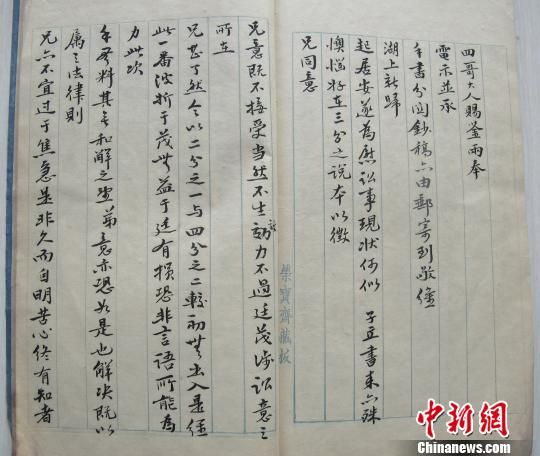 四哥大人賜鑒兩奉
電示並承
手書分閱鈔稿亦由郵寄到敬
湖上新歸
起居安遂為慰訟事現狀何似 子立書来亦殊
懊惱好在三分之說本以徵
兄同意
榮寶齋藏板
兄意既不接受當然不生效力不過廷茂涉訟意之
所在
兄甚了然今以二分之一与四分之二較初無出入果經
此一番波折于茂無益于廷有損恐非言語所能為
力此次
料其無和解之望弟意亦恐如是也解决既以
属之法律則
兄亦不宜过于焦急是非久而自明苦心終有知者
中新网
www.chinanews.com